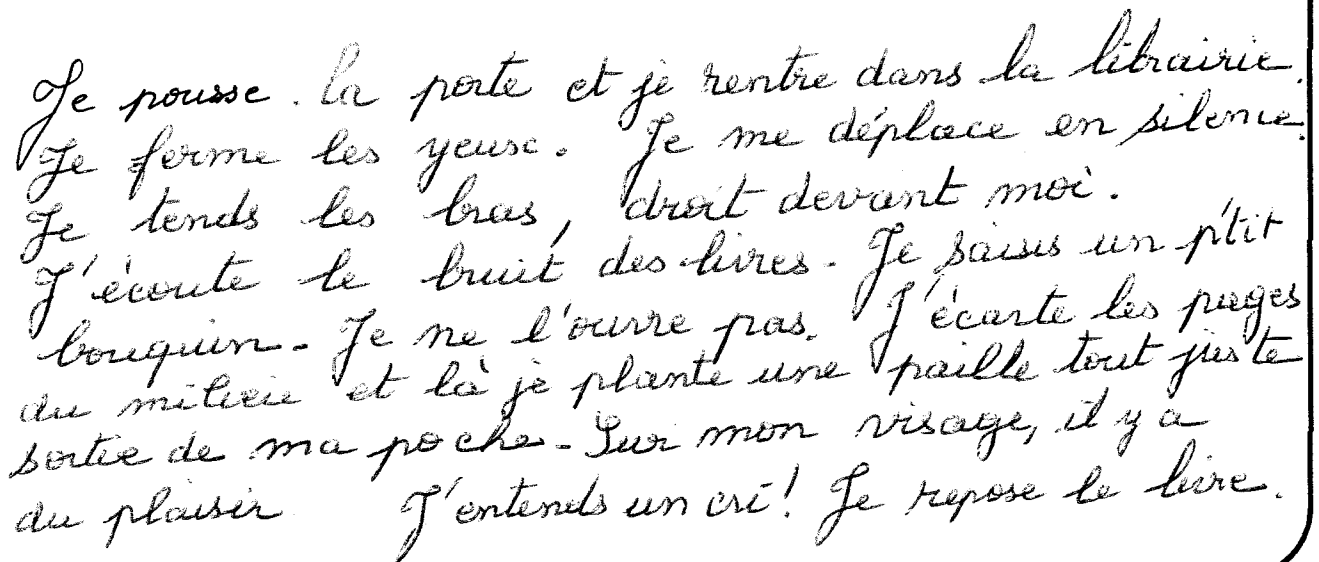 Je pousse. la porte et je rentre dans la librairie.
Je ferme les yeux. Je me déplace en silence.
Je tends les bras, droit devant moi.
J'écoute le bruit des livres. Je saisis un p'tit
bouquin. Je ne l'ouvre pas. J'écarte les pages
du milieu et là je plante une paille tout juste
sortie de ma poche. Sur mon visage, il y a
du plaisir J'entends un cri! Je repose le livre.